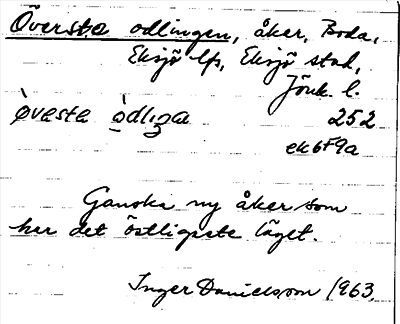 Översta odlingen, åker, Boda,
Eksjö lfs, Eksjö stad,
Jönk. l.
òveste òdliga 252
ek6F9a
Ganska ny åker som
har det östligaste läget.
Inger Danielsson 1963.